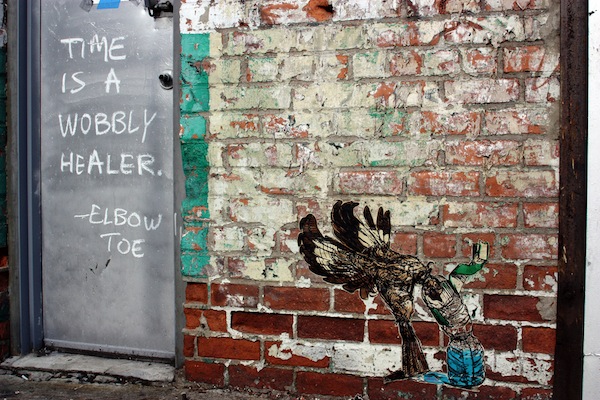 TIME
IS A
WOBBLY
HEALER.
-ELBOW
TOE